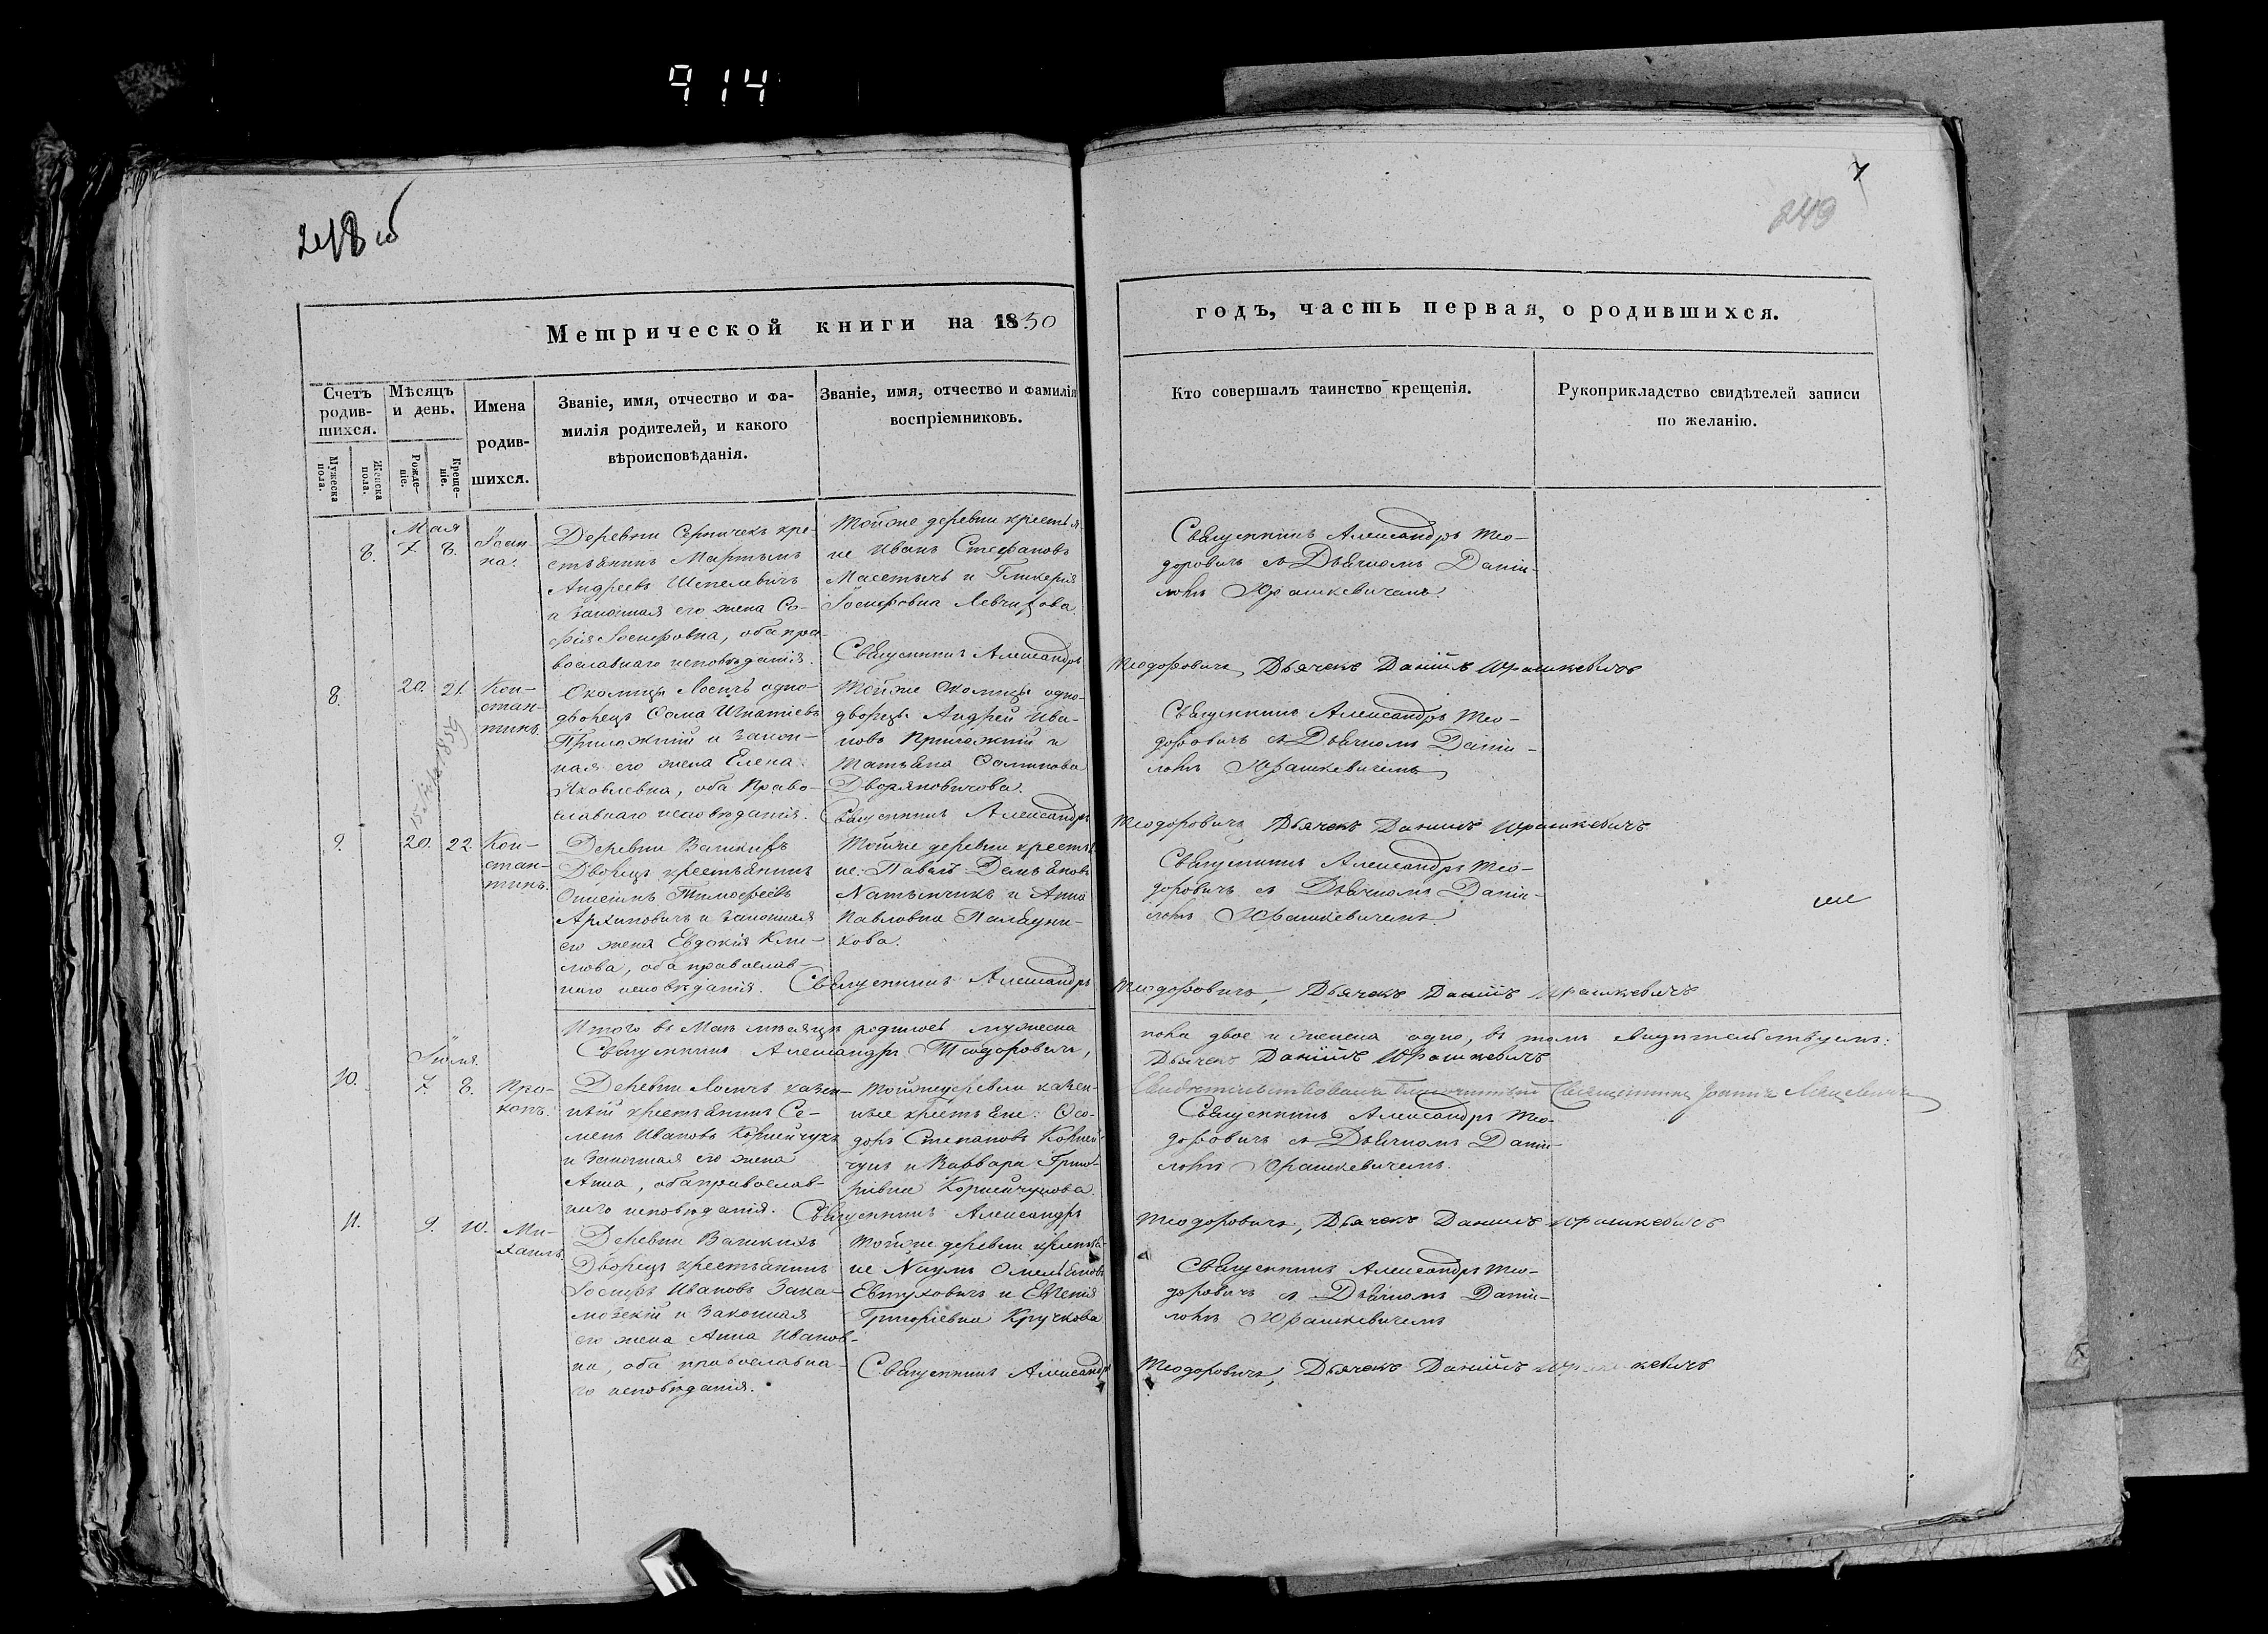 914
248 об
7
249
Метрической книги на 1850
годъ, часть первая, о родившихся.
Счетъ родив-шихся.
Мѣсяцъ и день.
Имена родив-шихся.
Званіе, имя, отчество и фа-
милія родителей, и какого
вѣроисповѣданія.
Званіе, имя, отчество и фамилія
воспріемниковъ.
Кто совершалъ таинство крещенія.
Рукоприкладство свидѣтелей записи
по желанію.
Мужеска пола.
Женска пола.
Рожде-ніе.
Креще-ніе.
Мая
8. 7. 8. Іоан-
на.
Деревни Серничекъ кре-
стьянинъ Мартынъ
Андреевъ Шепелевичъ
и законная его жена Со-
фія Іосифовна, оба пра-
вославнаго исповѣданія.
Тойже деревни крестья-
не Иванъ Стефановъ
и Гликерія
Іосифовна
Священникъ Александръ Тео-
доровичъ съ Дьячкомъ Даніи-
ломъ Юрашкевичемъ.
Священникъ Александръ Теодоровичъ, Дьячекъ Даніилъ Юрашкевичъ
8. 20. 21. Кон-
стан-
тинъ.
Околицы Лосичъ одно-
дворецъ Ѳома Игнатіевъ
и закон-
ная его жена Елена
Яковлевна, оба Право-
славнаго исповѣданія.
Тойже Околицы одно-
дворцы Андрей Ива-
новъ и
Татьяна
Дворяновичова.
Священникъ Александръ Тео-
доровичъ съ Дьячкомъ Даніи-
ломъ Юрашкевичемъ
Священникъ Александръ Теодоровичъ, Дьячекъ Даніилъ Юрашкевичъ
9. 20. 22. Кон-
стан-
тинъ.
Деревни
Дворецъ крестьянинъ
Тимофеевъ
Архиповичъ и законная
его жена Евдокія Кли-
мова, оба православ-
наго исповѣданія.
Тойже деревни крестья-
не: Павелъ Демьяновъ
и Анна
Павловна
кова.
Священникъ Александръ Тео-
доровичъ съ Дьячкомъ Даніи-
ломъ Юрашкевичемъ.
Священникъ Александръ Теодоровичъ, Дьячекъ Даніилъ Юрашкевичъ
Итого въ Маѣ мѣсяцѣ родилось мужеска пола двое и женска одно, въ томъ свидѣтельствуемъ:
Священникъ Александръ Теодоровичъ, Дьячекъ Даніилъ Юрашкевичъ
Свидѣтельствовалъ Благочинный Священникъ Іоаннъ
Іюля.
10. 7. 8. Про-
копъ.
Деревни Лосичъ казен-
ный крестьянинъ Се-
менъ Ивановъ Корнейчукъ
и законная его жена
Анна, оба православ-
наго исповѣданія.
Тойже деревни казен-
ные крестьяне: Ѳео-
доръ Степановъ Корней-
чукъ и Варвара Григо-
рьевна Корнейчукова.
Священникъ Александръ Тео-
доровичъ съ Дьячкомъ Даніи-
ломъ Юрашкевичемъ.
Священникъ Александръ Теодоровичъ, Дьячекъ Даніилъ Юрашкевичъ
11. 9. 10. Ми-
хаилъ.
Деревни
Дворецъ крестьянинъ
Іосифъ Ивановъ
и законная
его жена Анна Иванов-
на, оба православна-
го исповѣданія.
Тойже деревни крестья-
не Наумъ Омельяновъ
Евтуховичъ и Евгенія
Григоріевна Кручкова
Священникъ Александръ Тео-
доровичъ съ Дьячкомъ Даніи-
ломъ Юрашкевичемъ
Священникъ Александръ Теодоровичъ, Дьячекъ Даніилъ Юрашкевичъ